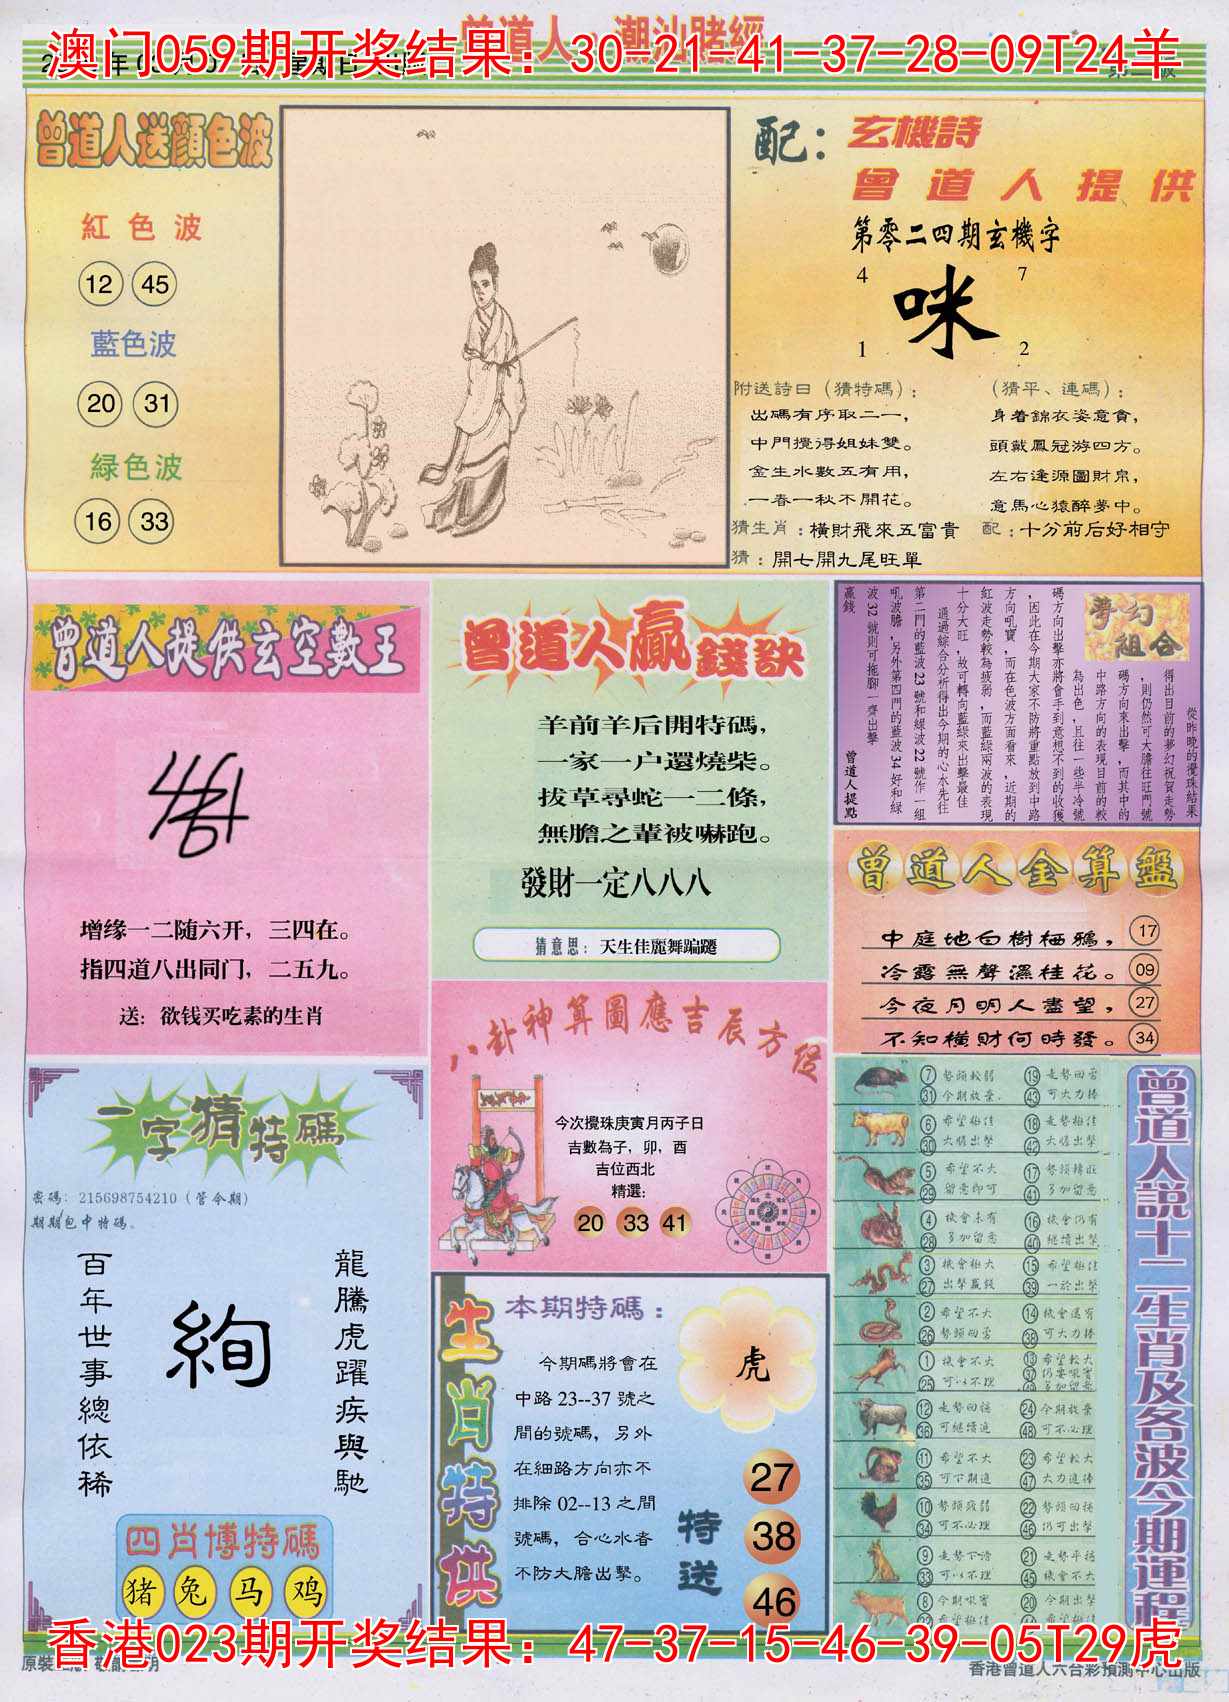 曾道人 潮汕賭經
澳门059期开奖结果：30-21-41-37-28-09T24羊
曾道人送顏色波
紅色波
12 45
藍色波
20 31
緑色波
16 33
配：
玄機詩
曾道人提供
第零二四期玄機字
4 7
咪
1 2
附送詩曰（猜特碼）：
出碼有序取二一，
中門攪得姐妹雙。
金生水數五有用，
一春一秋不開花。
（猜平、連碼）：
身着錦衣姿意貪，
頭戴鳳冠游四方。
左右逢源圖財帛，
意馬心猿醉夢中。
猜生肖：橫財飛來五富貴
配：十分前后好相守
猜：開七開九尾旺單
曾道人提供玄空數王
增缘一二随六开，三四在。
指四道八出同门，二五九。
送：欲钱买吃素的生肖
曾道人贏錢訣
羊前羊后開特碼，
一家一户還燒柴。
拔草尋蛇一二條，
無膽之輩被嚇跑。
發財一定八八八
猜意思：天生佳麗舞蹁躚
夢幻組合
從昨晚的攪珠結果
得出目前的夢幻祝賀走勢
，則仍然可大膽往旺門號
碼方向來出擊，而其中的
中路方向的表現目前的較
為出色，且往一些半冷號
碼方向出擊亦將會手到意想不到的收獲
，因此在今期大家不防將重點放到中路
方向吼寶，而在色波方面看來，近期的
紅波走勢較為疲弱，而藍綠兩波的表現
十分大旺，故可轉向藍綠來出擊最佳
通過綜合分析得出今期的心水先往
第二門的藍波23號和綠波22號作一組
吼波膽，另外第四門的藍波34好和綠
波32號則可拖腳一齊出擊
贏錢
曾道人提點
曾道人金算盤
中庭地白樹栖鴉， 17
冷露無聲濕桂花。 09
今夜月明人盡望， 27
不知橫財何時發。 34
八卦神算圖應吉辰方位
今次攪珠庚寅月丙子日
吉數為子，卯，酉
吉位西北
精選：
20 33 41
一字猜特碼
密碼：215698754210（管今期）
期期包中特碼。
百年世事總依稀
絢
龍騰虎躍疾與馳
四肖博特碼
猪 兔 马 鸡
生肖特供
本期特碼：
虎
今期碼將會在
中路23--37號之
間的號碼，另外
在細路方向亦不
排除02--13之間
號碼，合心水者
不防大膽出擊。
特送
27
38
46
曾道人説十二生肖及各波今期運程
7 31 勢頭較弱 今期放棄
19 43 走勢回雷 可大力捧
6 30 希望極佳 大膽出擊
18 42 走勢極佳 大膽出擊
5 29 希望不大 留意即可
17 41 勢頭轉旺 多加留意
4 28 機會未有 多加留意
16 40 機會仍有 繼續出擊
3 27 機會極大 出擊贏錢
15 39 希望極佳 一於出擊
2 26 希望不大 勢頭回雷
14 38 機會還有 可大力捧
1 25 機會不大 可以不理
13 37 希望較大 仍要吼實 多加留意
12 36 走勢回穩 可繼續追
24 48 今期放棄 可不必理
11 35 希望不大 可下期追
23 47 希望較大 大力追捧
10 34 勢頭疲弱 可不必理
22 46 勢頭回穩 仍可出擊
9 33 走勢下滑 可以不理
21 45 走勢平穩 機會不大
8 32 今期吼實 希望極佳
20 今期出擊
香港023期开奖结果：47-37-15-46-39-05T29虎
香港曾道人六合彩預測中心出版